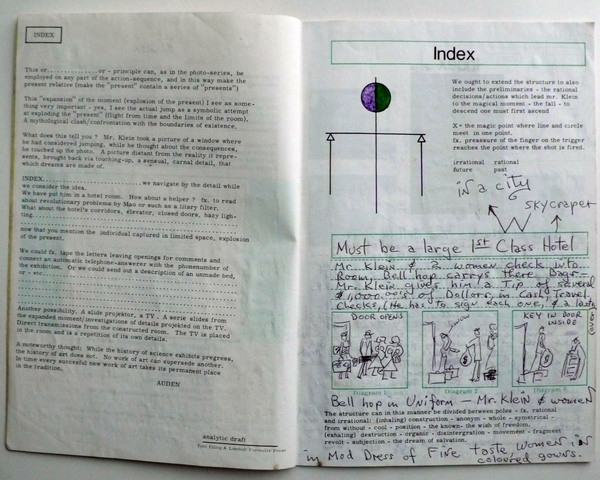 INDEX
This or...............or - principle can, as in the photo-series, be
employed on any part of the action-sequence, and in this way make the
present relative (make the "present" contain a series of "presents")
This "expansion" of the moment (explosion of the present) I see as some-
thing very important - yes, I see the actual jump as a symbolic attempt
at exploding the "present" (flight from time and the limits of the room).
A mythological clash/confrontation with the boundaries of existence.
What does this tell you ? Mr. Klein took a picture of a window where
he had considered jumping, while he thought about the consequences,
he touched up the photo. A picture distant from the reality it repre-
sents, brought back via touching-up, a sensual, carnal detail, that
which dreams are made of.
INDEX..............................we navigate by the detail while
we consider the idea.
We have put him in a hotel room. How about a helper ? fx. to read
about revolutionary problems by Mao or such as a litary filter.
What about the hotel's corridors, elevator, closed doors, hazy ligh-
ting
now that you mention the individual captured in limited space, explosion
of the present.
We could fx. tape the letters leaving openings for comments and
connect an automatic telephone-answerer with the phonenumber of
the exhibition. Or we could send a description of an unmade bed,
or - etc.
Another possibility. A slide projektor, a TV. A serie slides from
the expanded moment/investigations of details projekted on the TV.
Direct transmissions from the constructed room. The TV is placed
in the room and is a repetition of its own details.
A noteworthy thought: While the history of science exhibits progress,
the history of art does not. No work of art can supersede another.
In time every successful new work of art takes its permanent place
in the tradition.
AUDEN
analytic draft
Index
We ought to extend the structure to also
include the preliminaries - the rational
decisions/actions which lead mr. Klein
to the magical moment - the fall - to
descend one must first ascend
X = the magic point where line and circle
meet in one point.
fx. preasure of the finger on the trigger
reaches the point where the shot is fired.
irrational rational
future past
in a city
skycraper
Must be a large 1st Class Hotel
Mr. Klein & 2 women check into
Room, Bell hop carrys there Bags-
Mr. Klein gives him a Tip of several
$1,000.00's of Dollors, in Cash/Travel
Checks, (He has to sign each one, & a lasts
(over)
DOOR OPENS
KEY IN DOOR
INSIDE
Diagram 1
Diagram 2
Diagram 3
Bell hop in Uniform - Mr. Klein & women
The structure can in this manner be divided between poles - fx. rational
and irrational: (inhaling) construction - anonym - whole - symetrical -
from without - cool - position - the known - the wish of freedom.
(exhaling) destruction - organic - disintergration - movement - fragment
revolt - subjection - the dream of salvation.
in Mod Dress of Fine taste, women in
coloured gowns.